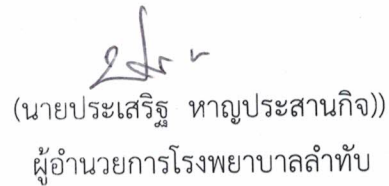 (นายประเสริฐ หาญประสานกิจ))
ผู้อำนวยการโรงพยาบาลลำทับ